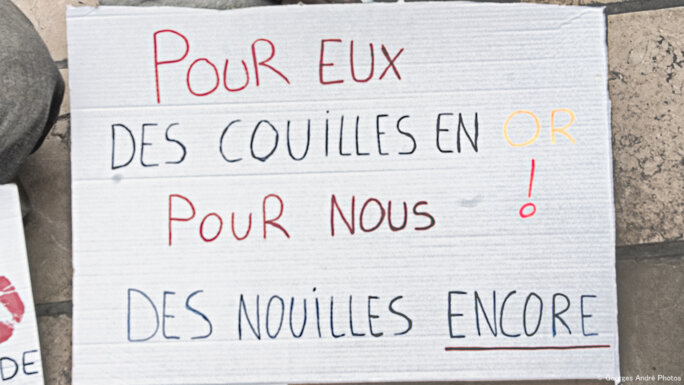 POUR EUX
DES COUILLES EN OR
!
POUR NOUS
DES NOUILLES ENCORE
DE
© Georges André Photos